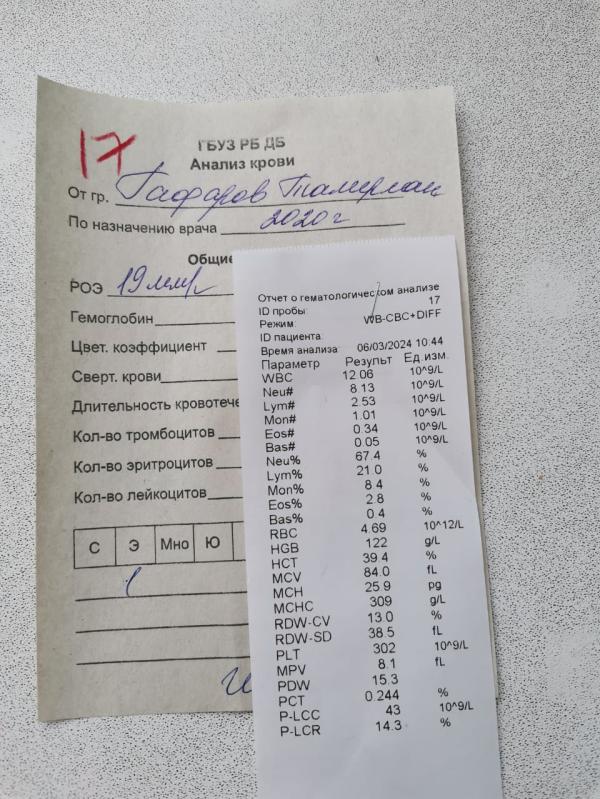 17
ГБУЗ РБ ДБ
Анализ крови
От гр. Гафаров Тамерлан
По назначению врача 2020 г
Общие
РОЭ 19 мм/ч
Гемоглобин
Цвет. коэффициент
Сверт. крови
Длительность кровотече
Кол-во тромбоцитов
Кол-во эритроцитов
Кол-во лейкоцитов
С Э Мно Ю
1
Отчет о гематологическом анализе
ID пробы: 17
Режим: WB-CBC+DIFF
ID пациента:
Время анализа: 06/03/2024 10:44
Параметр Результ Ед.изм.
WBC 12.06 10^9/L
Neu# 8.13 10^9/L
Lym# 2.53 10^9/L
Mon# 1.01 10^9/L
Eos# 0.34 10^9/L
Bas# 0.05 10^9/L
Neu% 67.4 %
Lym% 21.0 %
Mon% 8.4 %
Eos% 2.8 %
Bas% 0.4 %
RBC 4.69 10^12/L
HGB 122 g/L
HCT 39.4 %
MCV 84.0 fL
MCH 25.9 pg
MCHC 309 g/L
RDW-CV 13.0 %
RDW-SD 38.5 fL
PLT 302 10^9/L
MPV 8.1 fL
PDW 15.3
PCT 0.244 %
P-LCC 43 10^9/L
P-LCR 14.3 %